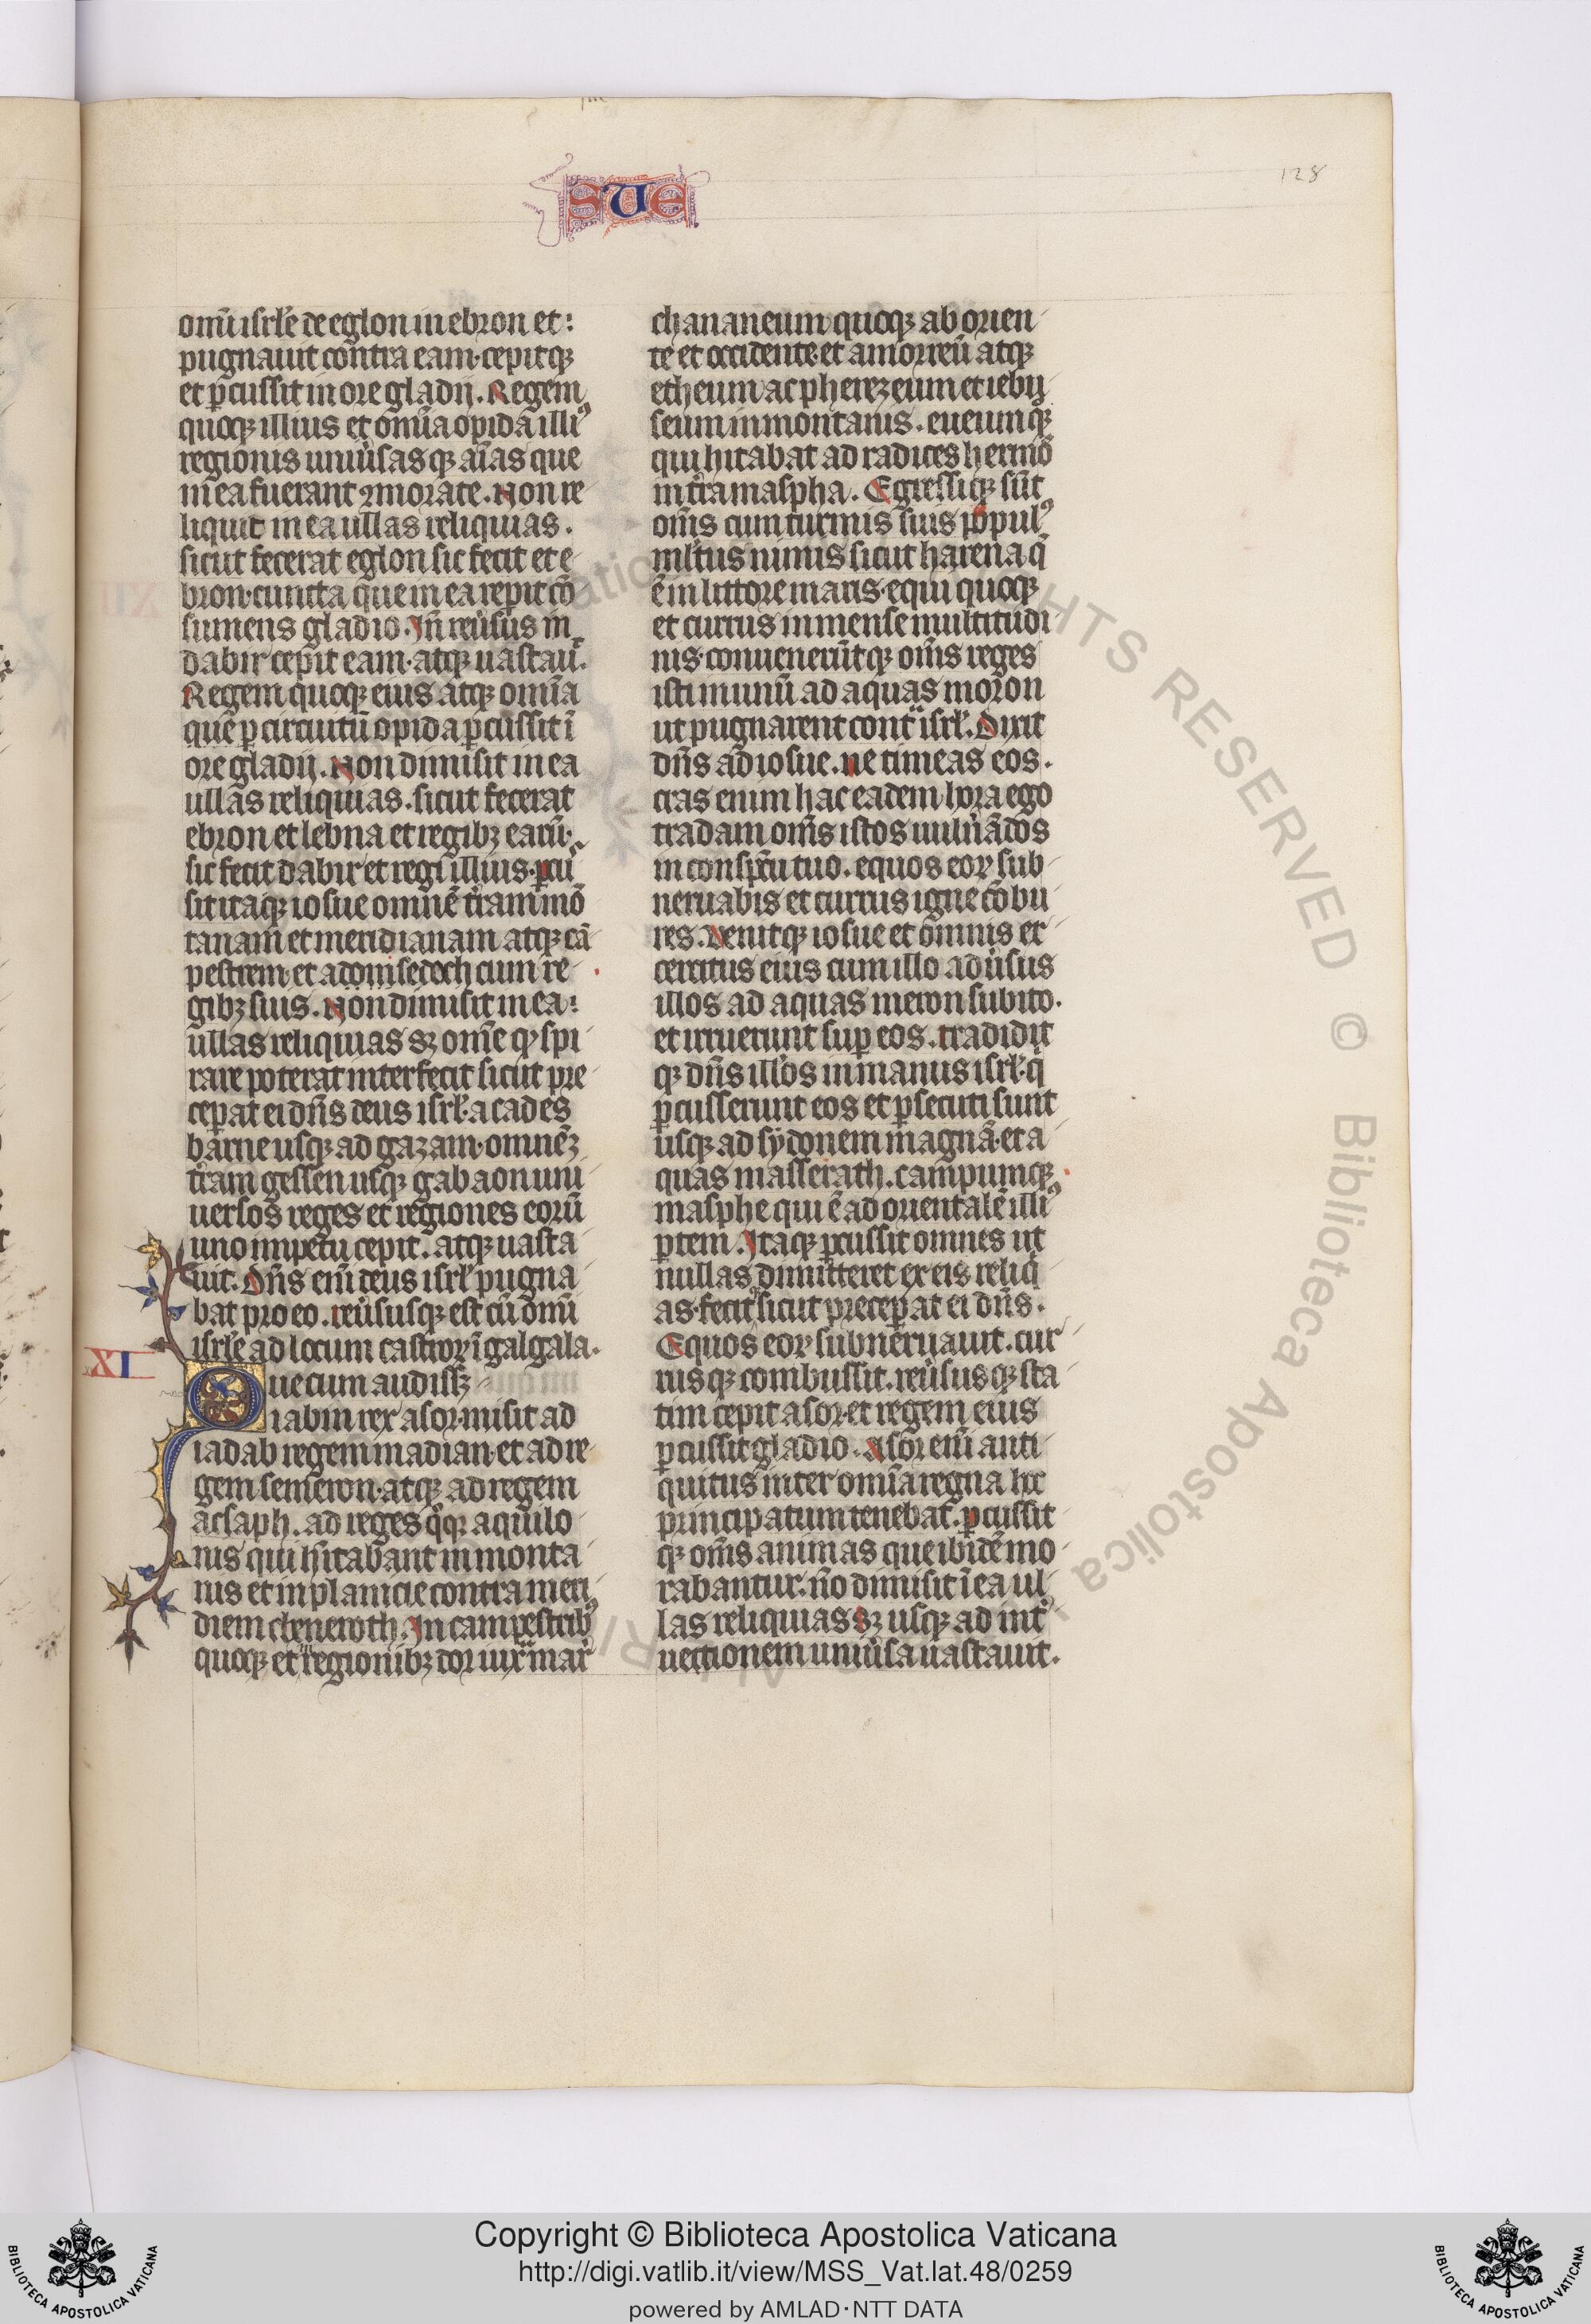 128
SUE
omĩ isrl'e de eglon in ebron et:
pugnauit contra eam. cepitqꝫ
et ꝑcussit in ore gladij. Regem
quoqꝫ illius et om̃ia opida illiꝰ
regionis uniũsasqꝫ aĩas que
in ea fuerant ꝯmorate. Non re
liquit in ea ullas reliquias.
sicut fecerat eglon sic fecit et e
bron. cuncta que in ea reperit cõ
sumens gladio. Iñ reũsus in
dabir cepit eam. atqꝫ uastauͭ.
Regem quoqꝫ eius atqꝫ om̃ia
que ꝑ circuitũ opida ꝑcussit ĩ
ore gladij. Non dimisit in ea
ullas reliquias. sicut fecerat
ebron et lebna et regibꝫ earũ.
sic fecit dabir et regi illius. ꝑcuͨ
sit itaqꝫ iosue omnẽ t̃ram mõ
tanam et meridianam atqꝫ cã
pestrem. et adonisedech cum re
gibꝫ suis. Non dimisit in ea:
ullas reliquias sꝫ om̃e qͩ spi
rare poterat interfecit sicut pre
ceꝑat ei dñs deus isrl'. a cades
barne usqꝫ ad gazam. omnẽꝫ
t̃ram gessen usqꝫ gabaon uni
uersos reges et regiones eorũ
uno impetu cepit. atqꝫ uasta
uit. Dñs eni deus isrl' pugna
bat pro eo. reũsusqꝫ est cũ omĩ
isrl'e ad locum castroꝝ ĩ galgala.
XI
Que cum audissꝫ
iabin rex asor. misit ad
iadab regem madian. et ad re
gem semeron. atqꝫ ad regem
acsaph. ad reges qͦqꝫ aquilo
nis qui hĩtabant in monta
nis et in planicie contra meri
diem cheneroth. In campestribꝰ
quoqꝫ et regionibꝫ dor iuxͣ mar̃
chananeum quoqꝫ ab orien
te et occidente. et amorreũ atqꝫ
etheum ac pherezeum et iebu
seum in montanis. eueumqꝫ
qui hitabat ad radices hermõ
in t̃ra maspha. Egressiqꝫ sũt
om̃s cum turmis suis populꝰ
ml'tus nimis sicut harena q̃
ẽ in littore maris. equi quoqꝫ
et currus inmense multitudi
nis. conuenerũtqꝫ om̃s reges
isti in unũ ad aquas moron
ut pugnarent contͣ isrl'. Dixit
dñs ad iosue. ne timeas eos.
cras enim hac eadem hora ego
tradam om̃s istos uuln̾ãdos
in conspc̃u tuo. equos eoꝝ sub
neruabis et currus igne cõbu
res. Venitqꝫ iosue et omnis er
cercitus eius cum illo adũsus
illos ad aquas meron subito.
et irruerunt suꝑ eos. tradidit
qꝫ dñs illos in manus isrl'. qͥ
ꝑcusserunt eos et ꝑsecuti sunt
usqꝫ ad sydonem magnã. et a
quas masserath. campumqꝫ
masphe qui ẽ ad orientalẽ illiꝰ
ꝑtem. Itaqꝫ ꝑcussit omnes ut
nullas dimitteret ex eis reliqͥ
as. fecit sicut preceꝑat ei dñs.
Equos eoꝝ subneruauit. cur
rusqꝫ combussit. reũsusqꝫ sta
tim cepit asor. et regem eius
ꝑcussit gladio. Asor eni anti
quitus inter om̃ia regna hec
principatum tenebat. ꝑcussit
qꝫ om̃s animas que ibidẽ mo
rabantur. ño dimisit ĩ ea ul
las reliquias sꝫ usqꝫ ad int̾
nectionem uniũsa uastauit.
RIGHTS RESERVED © Biblioteca Apostolica
Copyright © Biblioteca Apostolica Vaticana
http://digi.vatlib.it/view/MSS_Vat.lat.48/0259
powered by AMLAD·NTT DATA
BIBLIOTECA APOSTOLICA VATICANA
BIBLIOTECA APOSTOLICA VATICANA